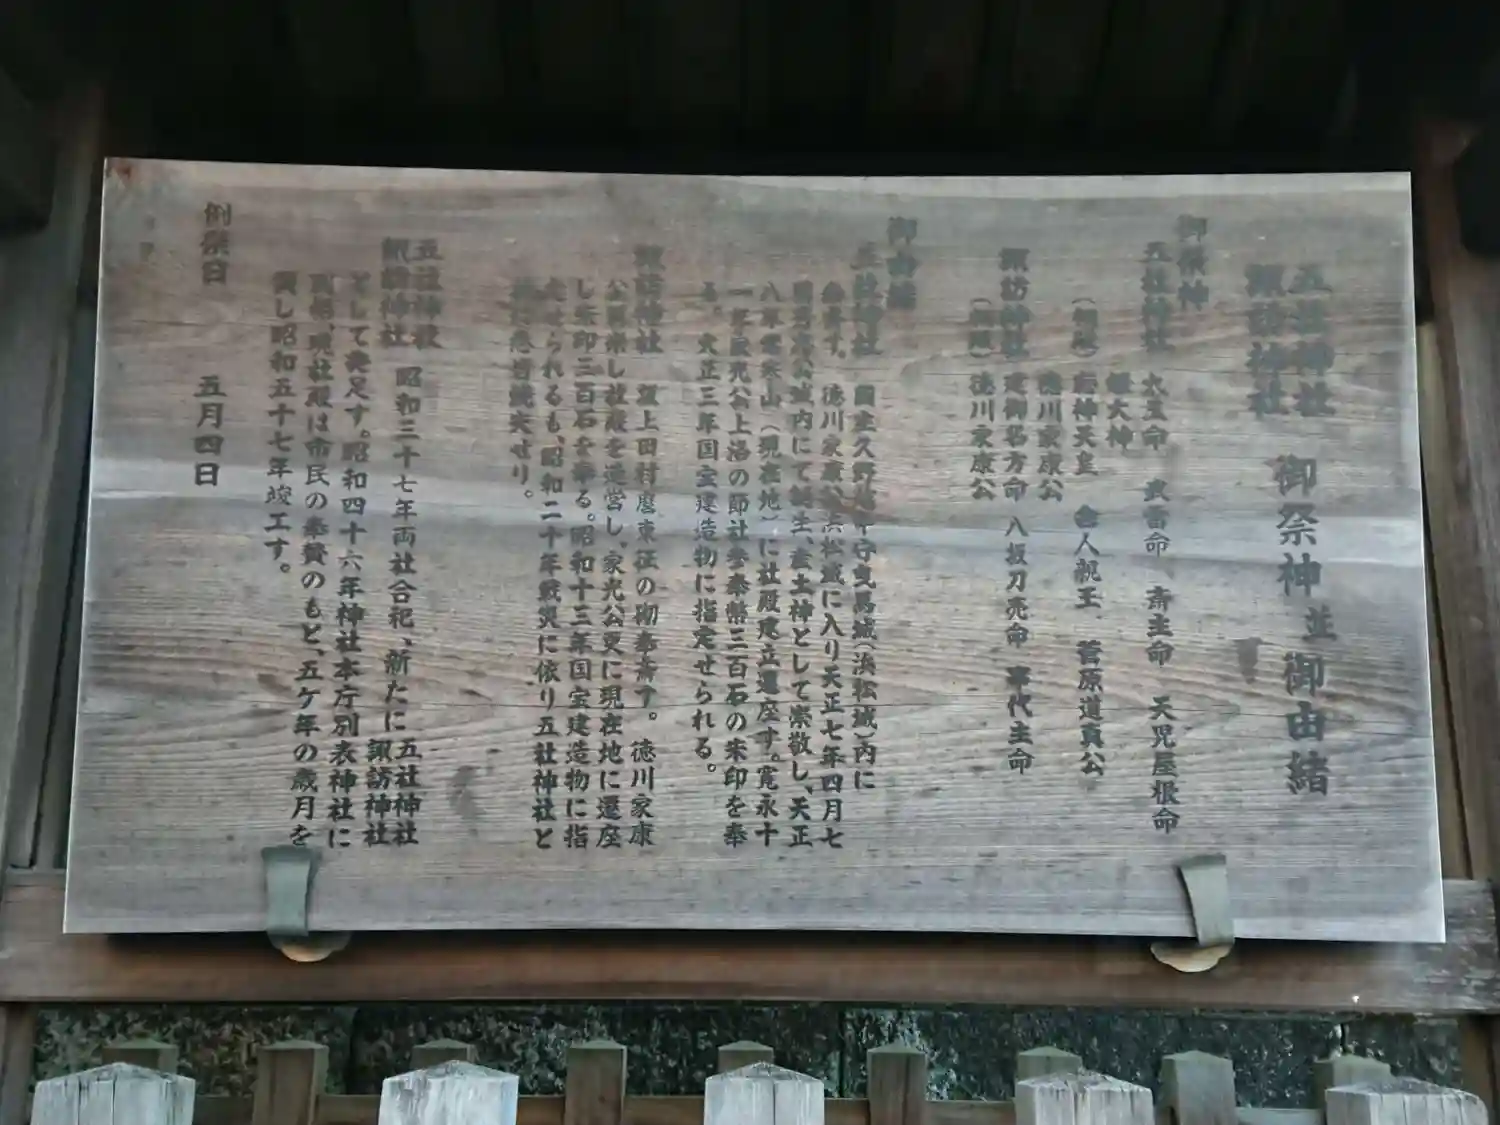 五社神社
諏訪神社
御祭神並御由緒
御祭神
五社神社 太玉命 武雷命 斎主命 天児屋根命
姫大神
(相殿) 応神天皇 舎人親王 菅原道真公
徳川家康公
諏訪神社 建御名方命 八坂刀売命 事代主命
(相殿) 徳川家康公
御由緒
五社神社 国主久野越中守曳馬城(浜松城)内に
徳川家康公浜松城に入り天正七年四月七
城内にて誕生、産土神として崇敬し、天正
八年常寒山(現在地)に社殿建立遷座す。寛永十
一年家光公上洛の節社参奉幣三百石の朱印を奉
る。大正三年国宝建造物に指定せられる。
諏訪神社 坂上田村麿東征の砌奉斎す。徳川家康
公崇し社殿を造営し、家光公更に現在地に遷座
し朱印三百石を奉る。昭和十三年国宝建造物に指
定せられるも、昭和二十年戦災に依り五社神社と
焼失せり。
五社神社
諏訪神社 昭和三十七年両社合祀、新たに五社神社
諏訪神社
として発足す。昭和四十六年神社本庁別表神社に
現社殿は市民の奉賛のもと、五ケ年の歳月を
要し昭和五十七年竣工す。
例祭日 五月四日